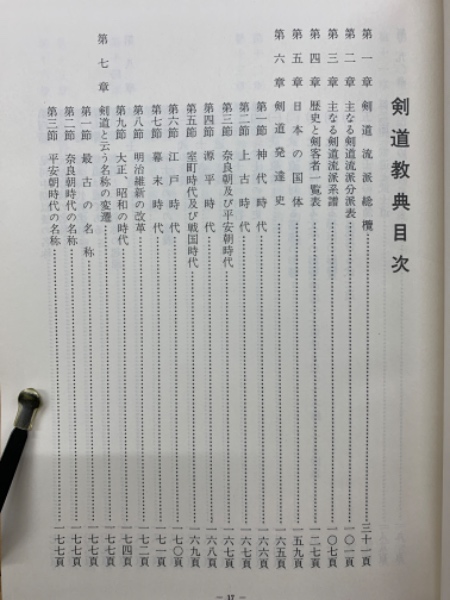 剣道教典目次
第一章 剣道流派総欖……三十一頁
第二章 主なる剣道流派分派表……一〇一頁
第三章 主なる剣道流派系譜……一〇七頁
第四章 歴史と剣客者一覧表……一二七頁
第五章 日本の国体……一五九頁
第六章 剣道発達史……一六五頁
第一節 神代時代……一六六頁
第二節 上古時代……一六七頁
第三節 奈良朝及び平安朝時代……一六七頁
第四節 源平時代……一六八頁
第五節 室町時代及び戦国時代……一六九頁
第六節 江戸時代……一七〇頁
第七節 幕末時代……一七一頁
第八節 明治維新の改革……一七二頁
第九節 大正、昭和の時代……一七四頁
第七章 剣道と云う名称の変遷……一七七頁
第一節 最古の名称……一七七頁
第二節 奈良朝時代の名称……一七七頁
第三節 平安朝時代の名称……一七七頁
— 17 —